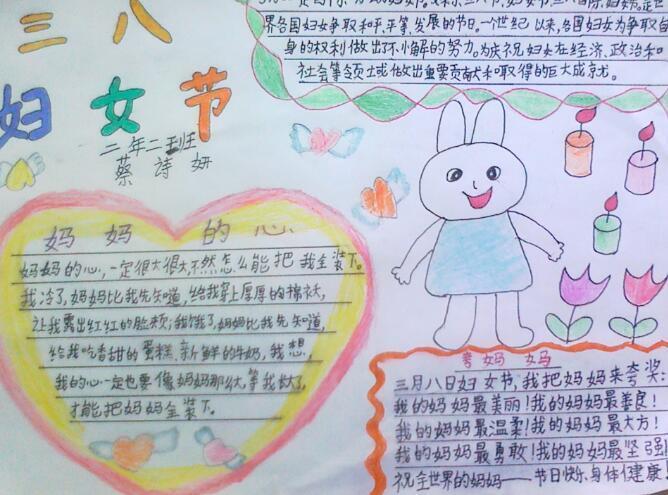 三八
妇女节
二年二班
蔡诗妍
界各国妇女争取和平、平等、发展的节日。一个世纪以来,各国妇女为争取自
身的权利做出了不小解的努力。为庆祝妇女在经济、政治和
社会等领土或做出重要贡献和取得的巨大成就。
妈妈的心
妈妈的心,一定很大很大,不然怎么能把我全装下。
我冷了,妈妈比我先知道,给我穿上厚厚的棉袄,
让我露出红红的脸颊;我饿了,妈妈比我先知道,
给我吃香甜的蛋糕、新鲜的牛奶,我想,
我的心一定也要像妈妈那么大,等我长大了,
才能把妈妈全装下。
夸妈妈
三月八日妇女节,我把妈妈来夸奖:
我的妈妈最美丽!我的妈妈最善良!
我的妈妈最温柔!我的妈妈最大方!
我的妈妈最勇敢!我的妈妈最坚强!
祝全世界的妈妈——节日快乐,身体健康!